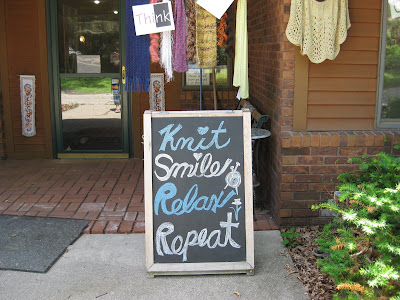 Think
Knit
Smile
Relax
Repeat